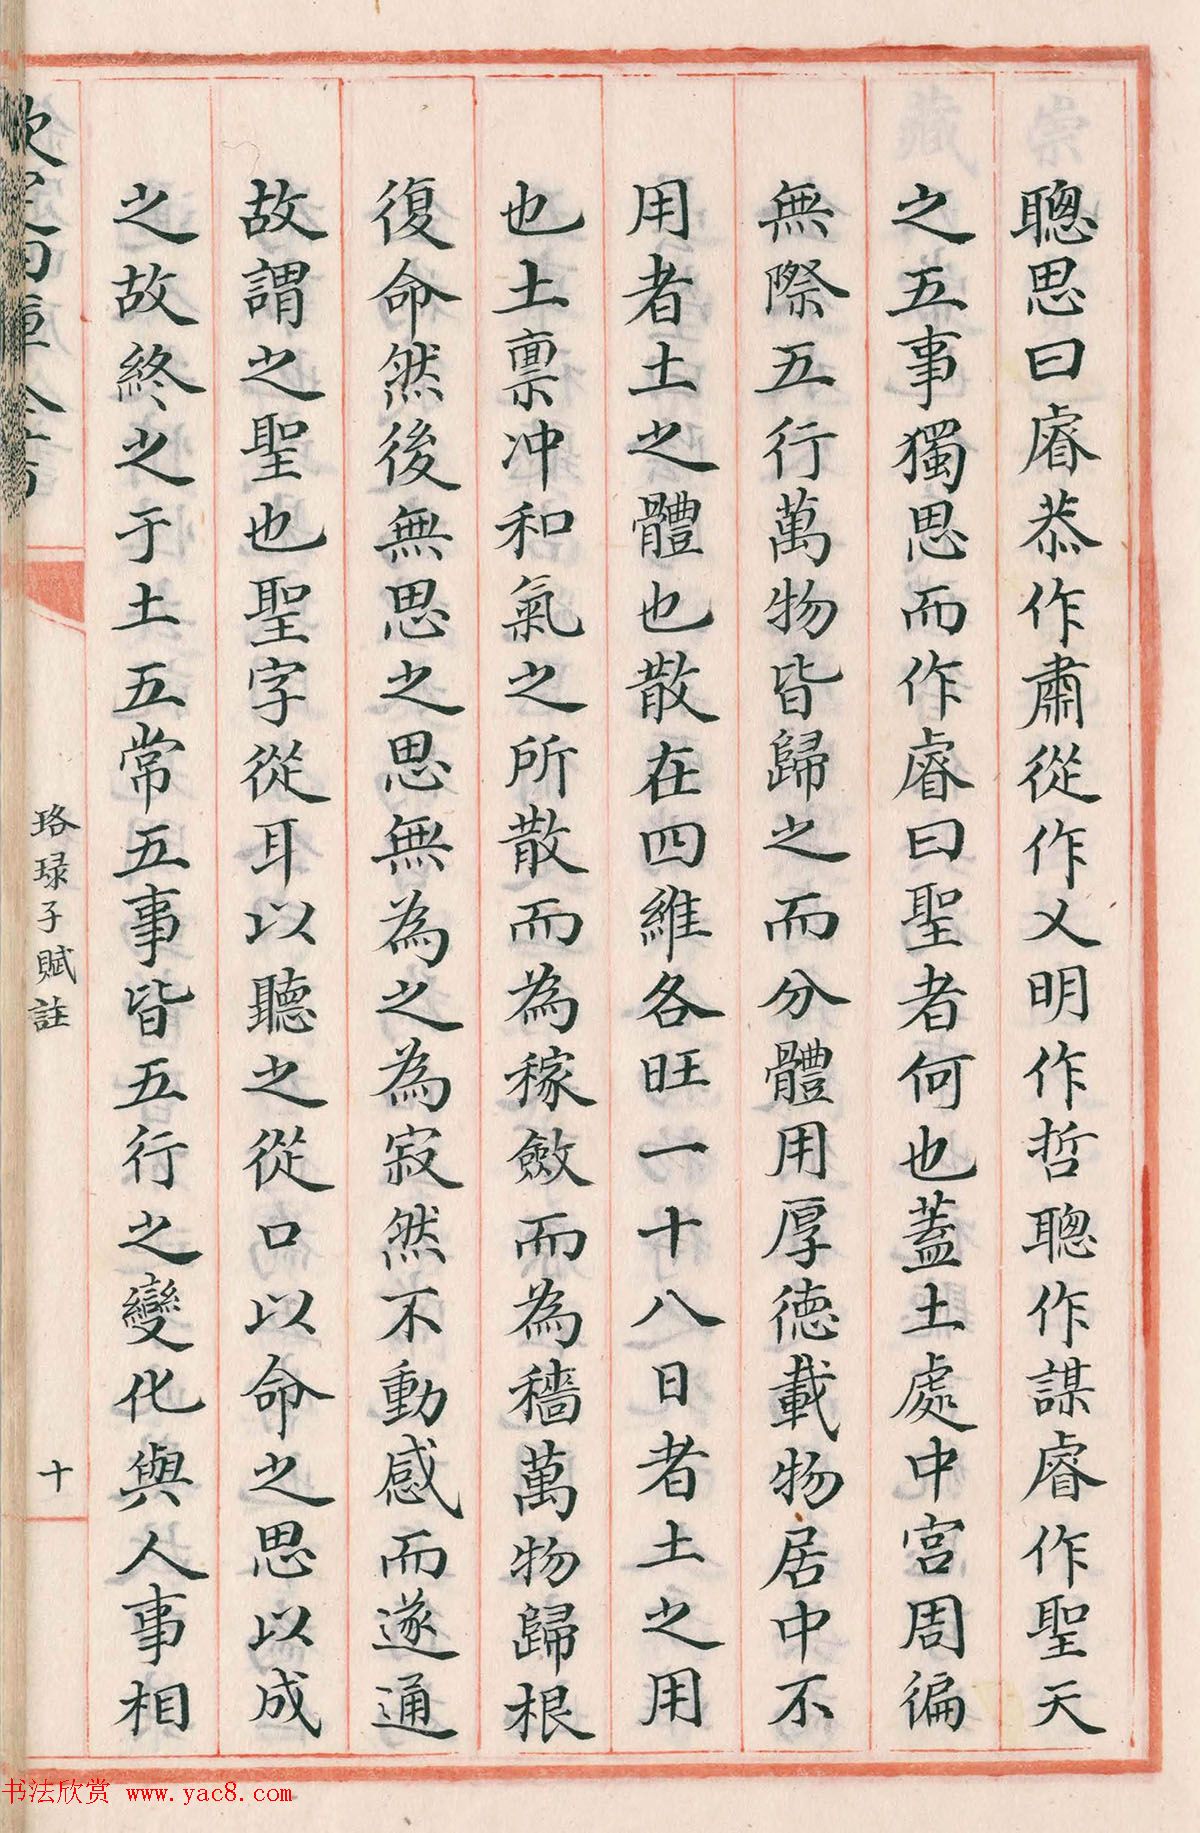 聰思曰睿恭作肅從作乂明作哲聰作謀睿作聖天
之五事獨思而作睿曰聖者何也蓋土處中宮周徧
無際五行萬物皆歸之而分體用厚德載物居中不
用者土之體也散在四維各旺一十八日者土之用
也土禀冲和氣之所散而為稼斂而為穡萬物歸根
復命然後無思之思無為之為寂然不動感而遂通
故謂之聖也聖字從耳以聽之從口以命之思以成
之故終之于土五常五事皆五行之變化與人事相
欽定四庫全書
珞琭子賦註
十
书法欣赏 www.yac8.com